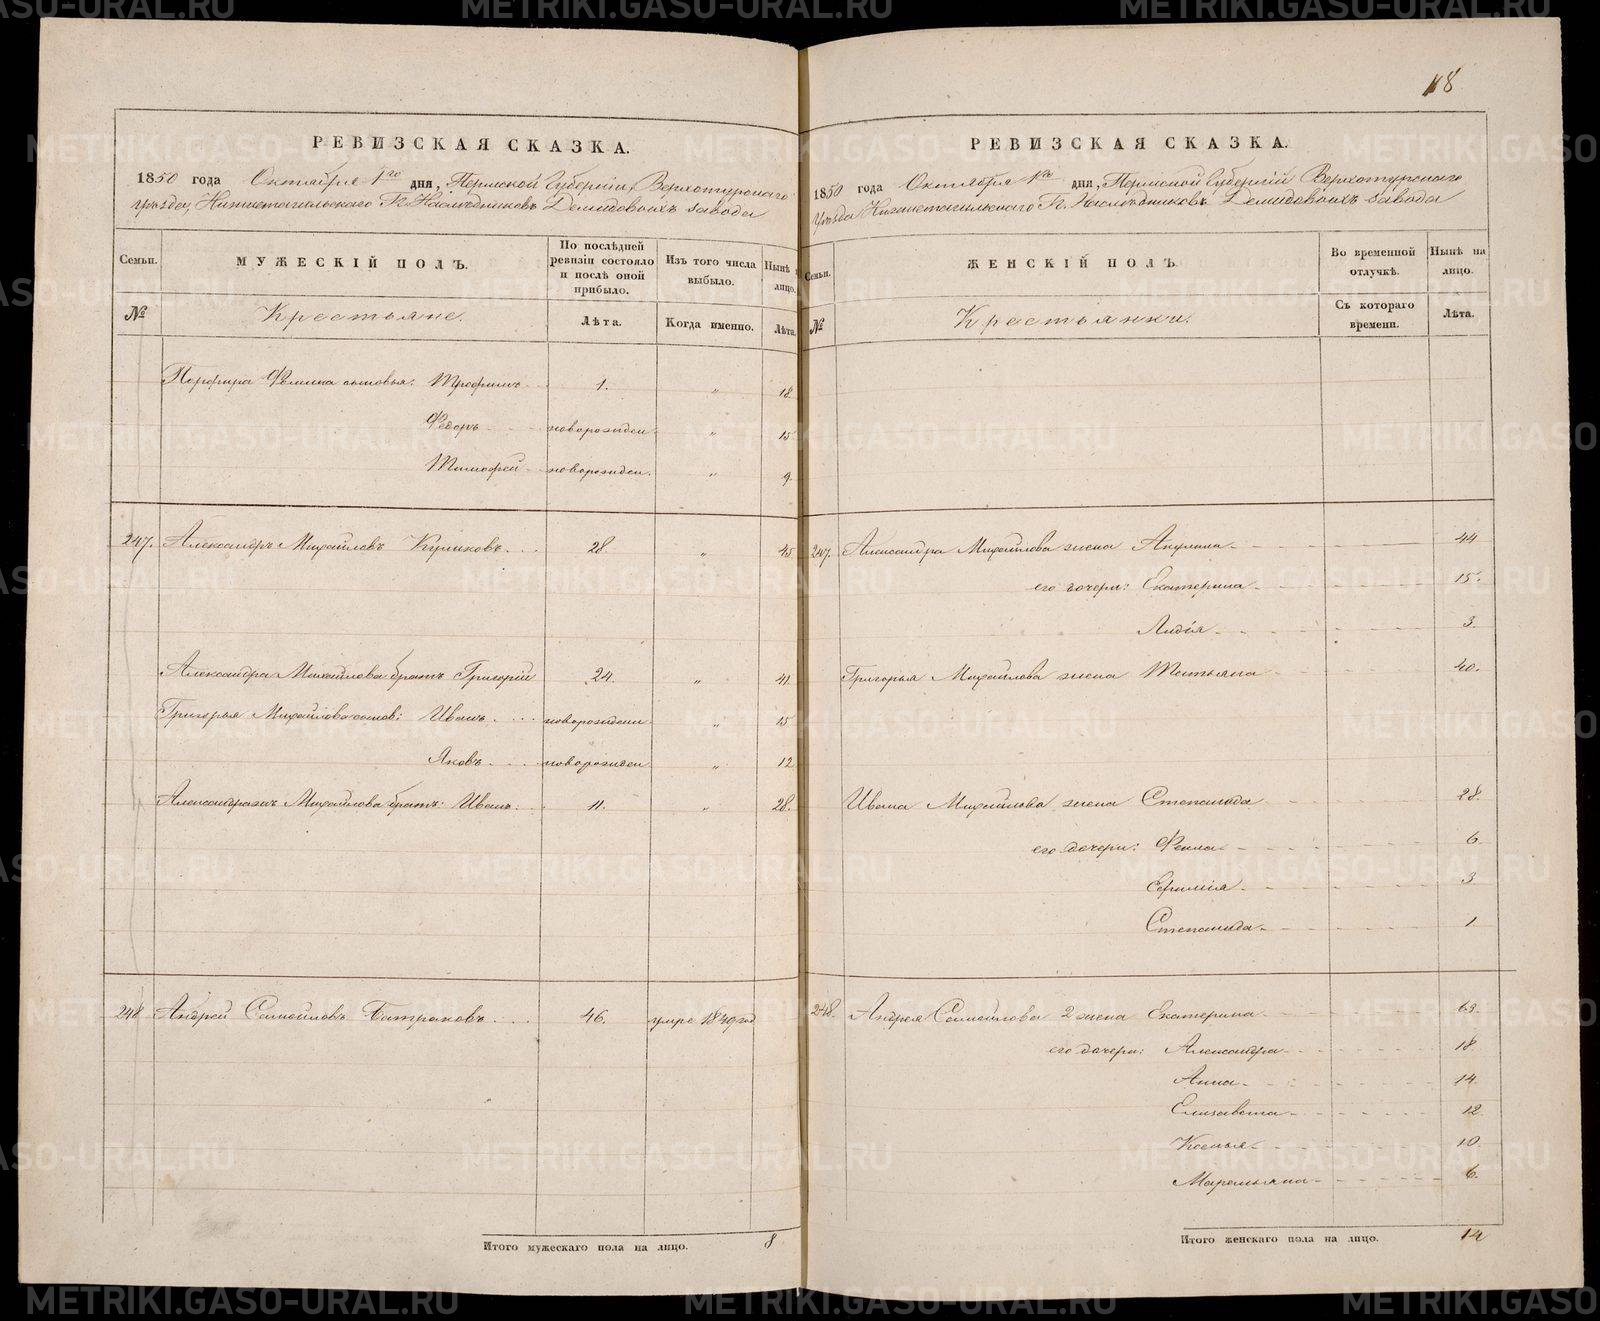 18
РЕВИЗСКАЯ СКАЗКА.
1850 года Октября 1го дня, Пермской Губерніи, Верхотурскаго
уѣзда, Нижнетагильскаго Г. Наслѣдниковъ Демидовыхъ завода
Семьи. МУЖЕСКІЙ ПОЛЪ. По послѣдней ревизіи состояло и послѣ оной прибыло. Изъ того числа выбыло. Нынѣ на лицо.
№ Крестьяне. Лѣта. Когда именно. Лѣта.
Порфира Фомина сыновья: Трофимъ 1. " 18
Федоръ новорожден. " 15
Тимофей новорожден. " 9.
247. Александръ Михайловъ Куликовъ 28 " 45
Александра Михайлова братъ Григорій 24. " 41
Григорья Михайлова сынов: Иванъ новорожден " 15
Яковъ новорожден " 12
Михайлова братъ: Иванъ 11. " 28.
248 Андрей Самойловъ Батраковъ 46. умре 1849 год
Итого мужескаго пола на лицо. 8
РЕВИЗСКАЯ СКАЗКА.
1850 года Октября 1го дня, Пермской Губерніи Верхотурскаго
Уѣзда Нижнетагильскаго Г. Наслѣдниковъ Демидовыхъ завода
Семьи. ЖЕНСКІЙ ПОЛЪ. Во временной отлучкѣ. Нынѣ на лицо.
№ Крестьянки. Съ котораго времени. Лѣта.
247. Александра Михайлова жена Акулина 44
его дочери: Екатерина 15.
Лидія 3.
Григорья Михайлова жена Татьяна 40.
Ивана Михайлова жена Степанида 28.
его дочери: Фекла 6.
3
Степанида 1
248. Андрея Самойлова 2 жена Екатерина 63.
его дочери: Александра 18
Анна 14.
Елизавета 12
Ксенья 10.
Маремьяна 6.
Итого женскаго пола на лицо. 14
METRIKI.GASO-URAL.RU